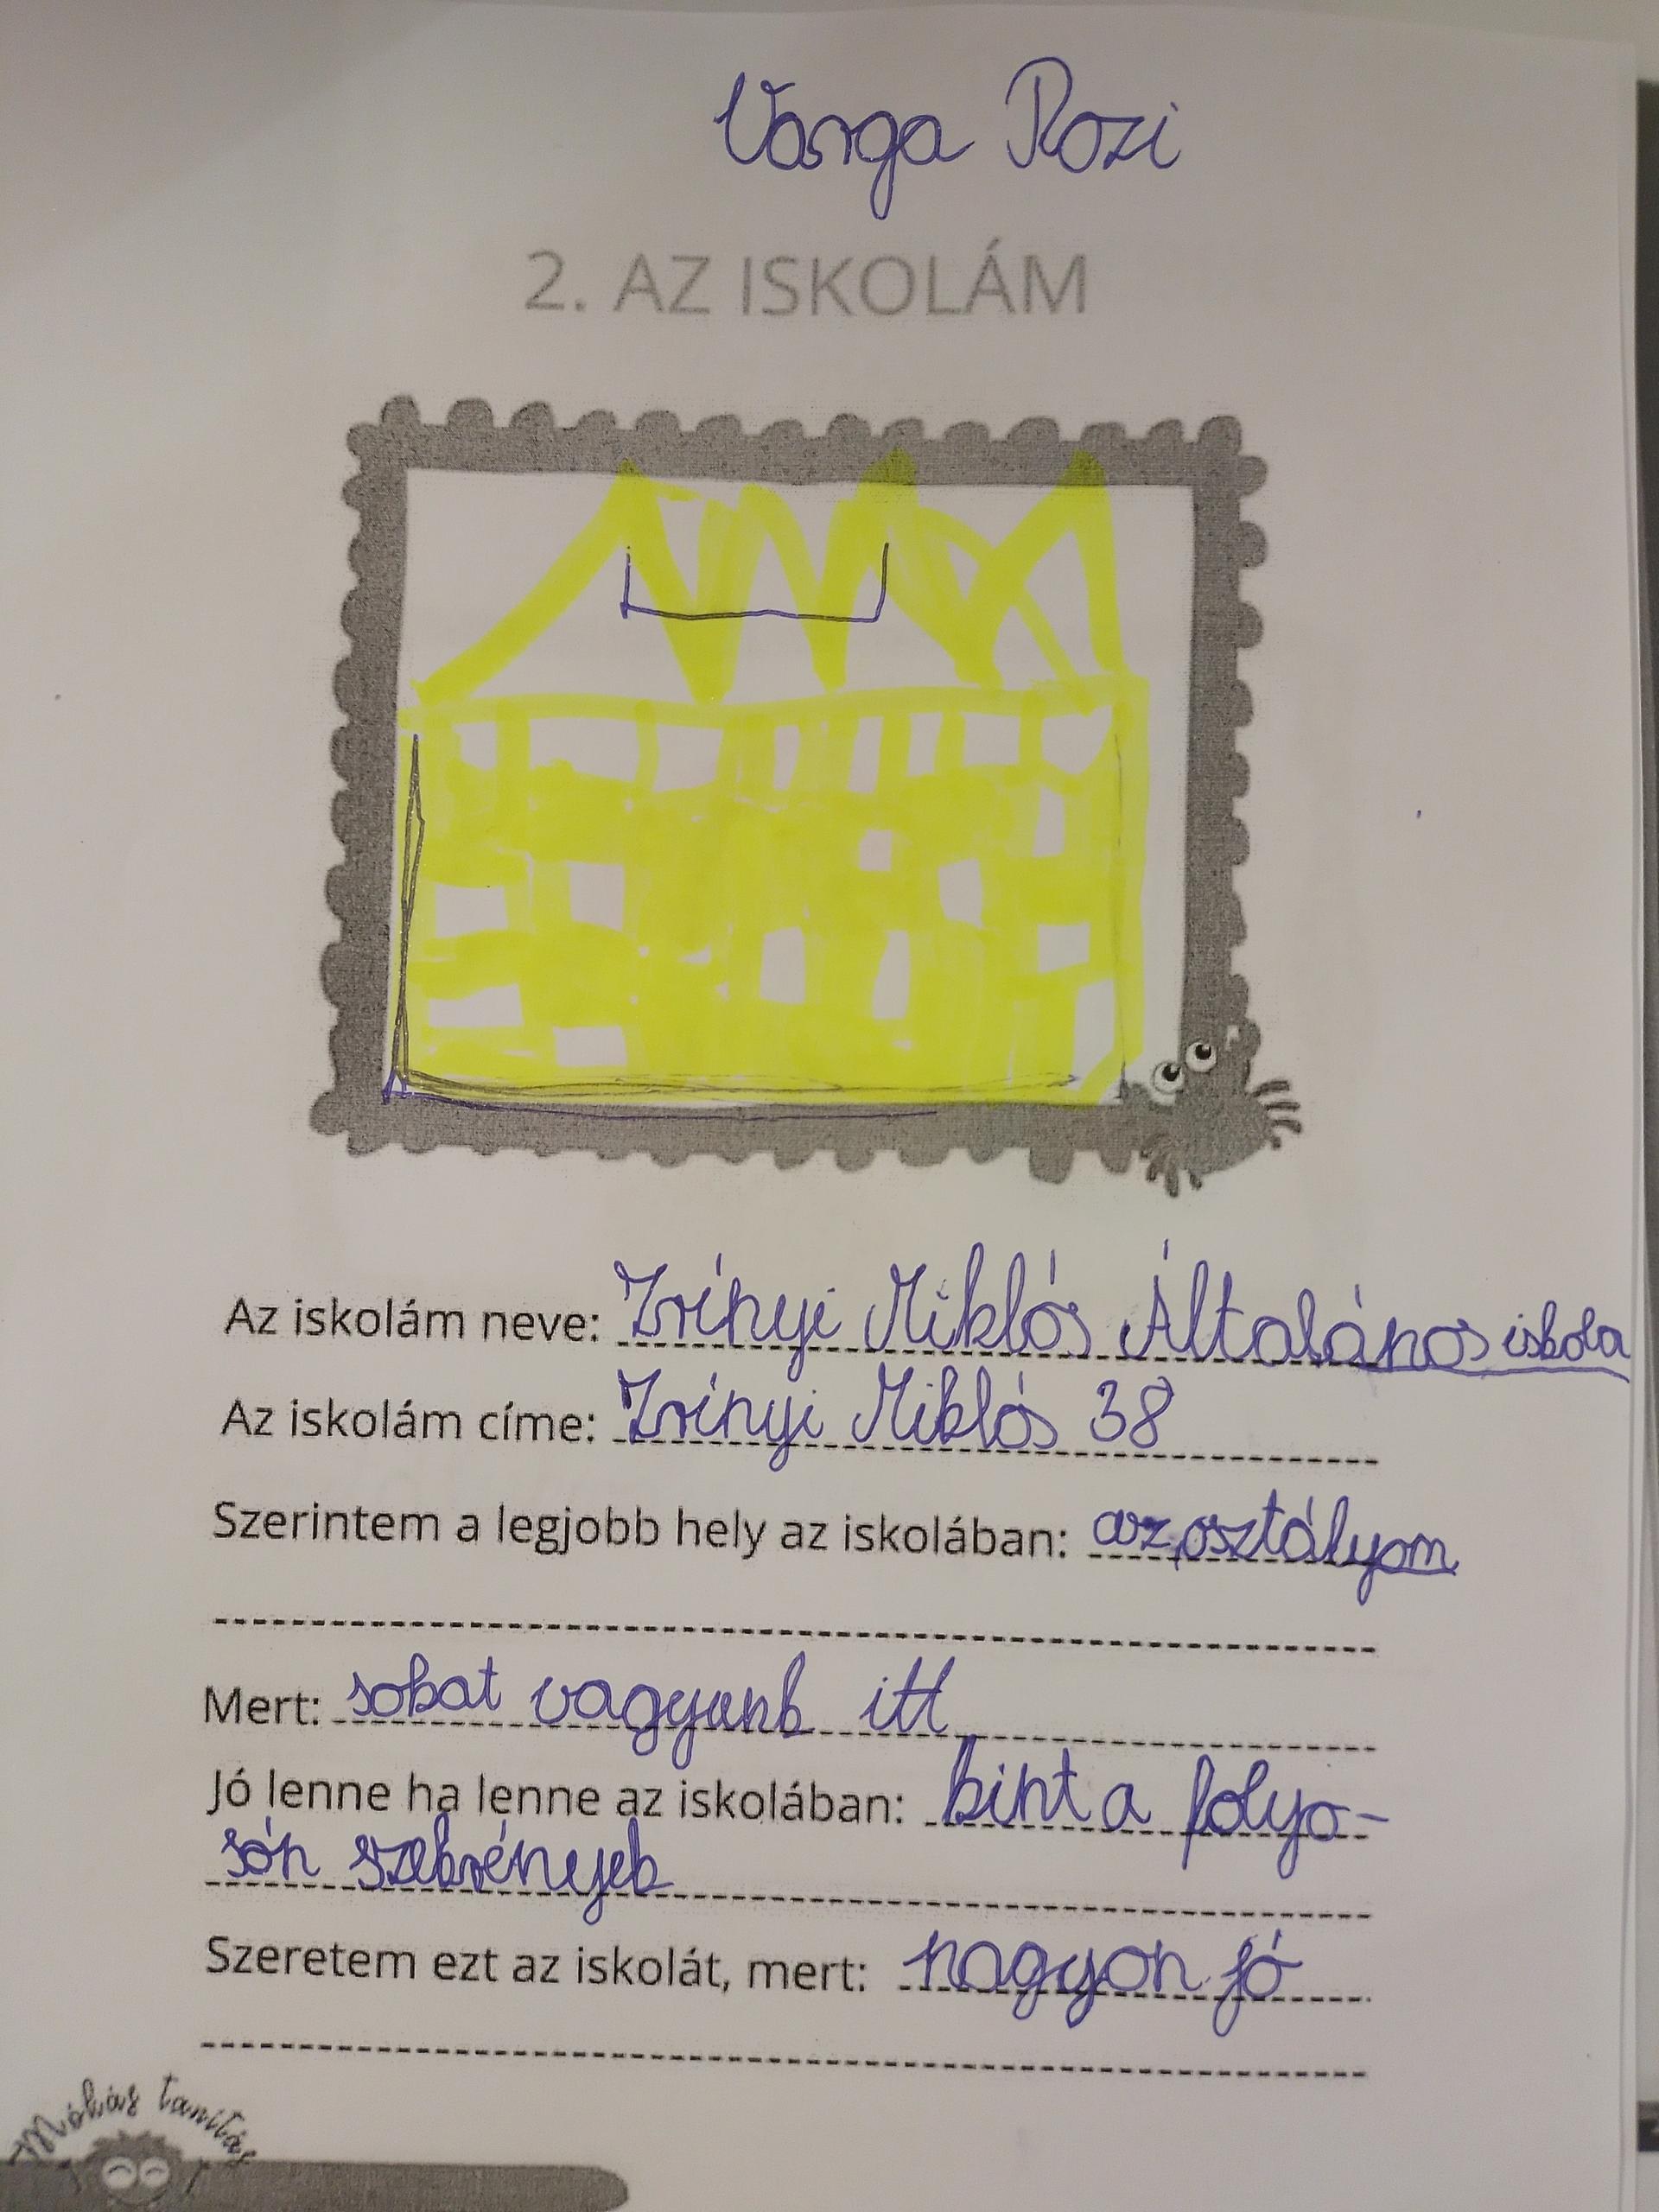 Varga Rozi
2. AZ ISKOLÁM
Az iskolám neve: Zrínyi Miklós Általános iskola
Az iskolám címe: Zrínyi Miklós 38
Szerintem a legjobb hely az iskolában: az osztályom
Mert: sokat vagyunk itt
Jó lenne ha lenne az iskolában: kint a folyo-
són szekrények
Szeretem ezt az iskolát, mert: nagyon jó
Mókás tanítás